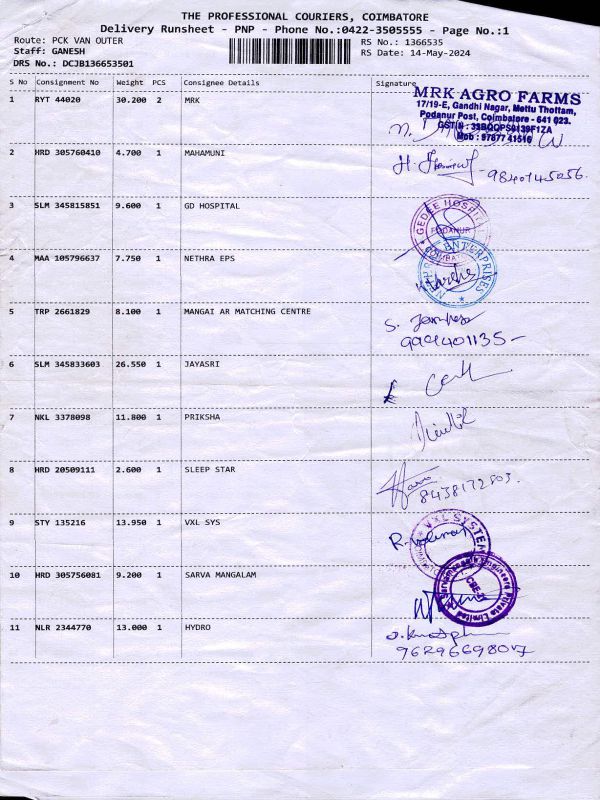 THE PROFESSIONAL COURIERS, COIMBATORE
Delivery Runsheet - PNP - Phone No.:0422-3505555 - Page No.:1
Route: PCK VAN OUTER RS No.: 1366535
Staff: GANESH RS Date: 14-May-2024
DRS No.: DCJB136653501
S No Consignment No Weight PCS Consignee Details Signature
1 RYT 44020 30.200 2 MRK
MRK AGRO FARMS
17/19-E, Gandhi Nagar, Mettu Thottam,
Podanur Post, Coimbatore - 641 023.
2 HRD 305760410 4.700 1 MAHAMUNI
3 SLM 345815851 9.600 1 GD HOSPITAL
GEDEE HOSPITAL
PODANUR
4 MAA 105796637 7.750 1 NETHRA EPS
ENTERPRISES
5 TRP 2661829 8.100 1 MANGAI AR MATCHING CENTRE
6 SLM 345833603 26.550 1 JAYASRI
7 NKL 3378098 11.800 1 PRIKSHA
8 HRD 20509111 2.600 1 SLEEP STAR
9 STY 135216 13.950 1 VXL SYS
VXL SYSTEM
10 HRD 305756081 9.200 1 SARVA MANGALAM
Engineers Private Limited
11 NLR 2344770 13.000 1 HYDRO